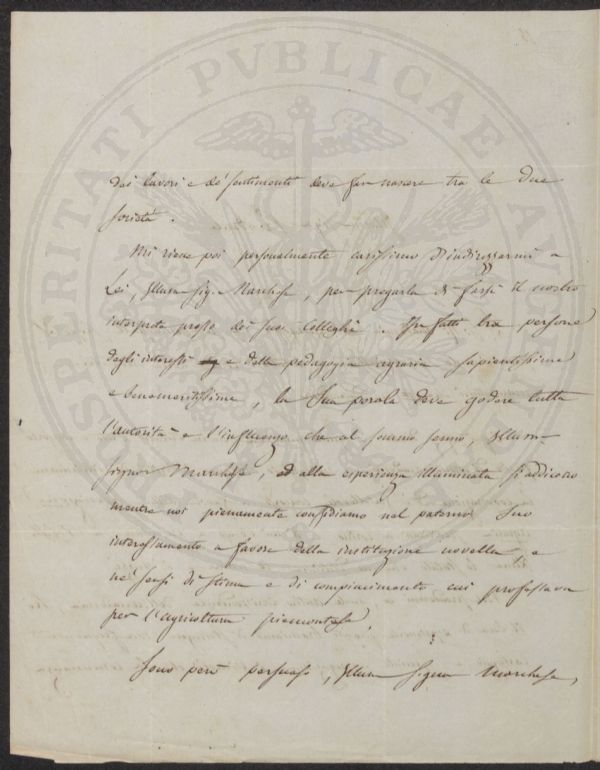 PROSPERITATI PVBLICAE AVGENDAE
dei lavori e de' sentimenti deve far nascere tra le due
società.
Mi viene poi personalmente carissimo d'indirizzarmi a
Lei, Illum. Sig. Marchese, per pregarla di farsi il nostro
interprete presso dei suoi Colleghi. In fatti tra persone
degli interessi e della pedagogia agraria sapientissime
e benemeritissime, la Sua parola deve godere tutta
l'autorità e l'influenza che al sommo senno, Illum-
Signor Marchese, ed alla esperienza illuminata si addicono
mentre noi pienamente confidiamo nel paterno Suo
interessamento a favore della instituzione novella, e
ne' sensi di stima e di compiacimento cui professava
per l'agricoltura piemontese.
Sono però persuaso, Illum Signor Marchese,